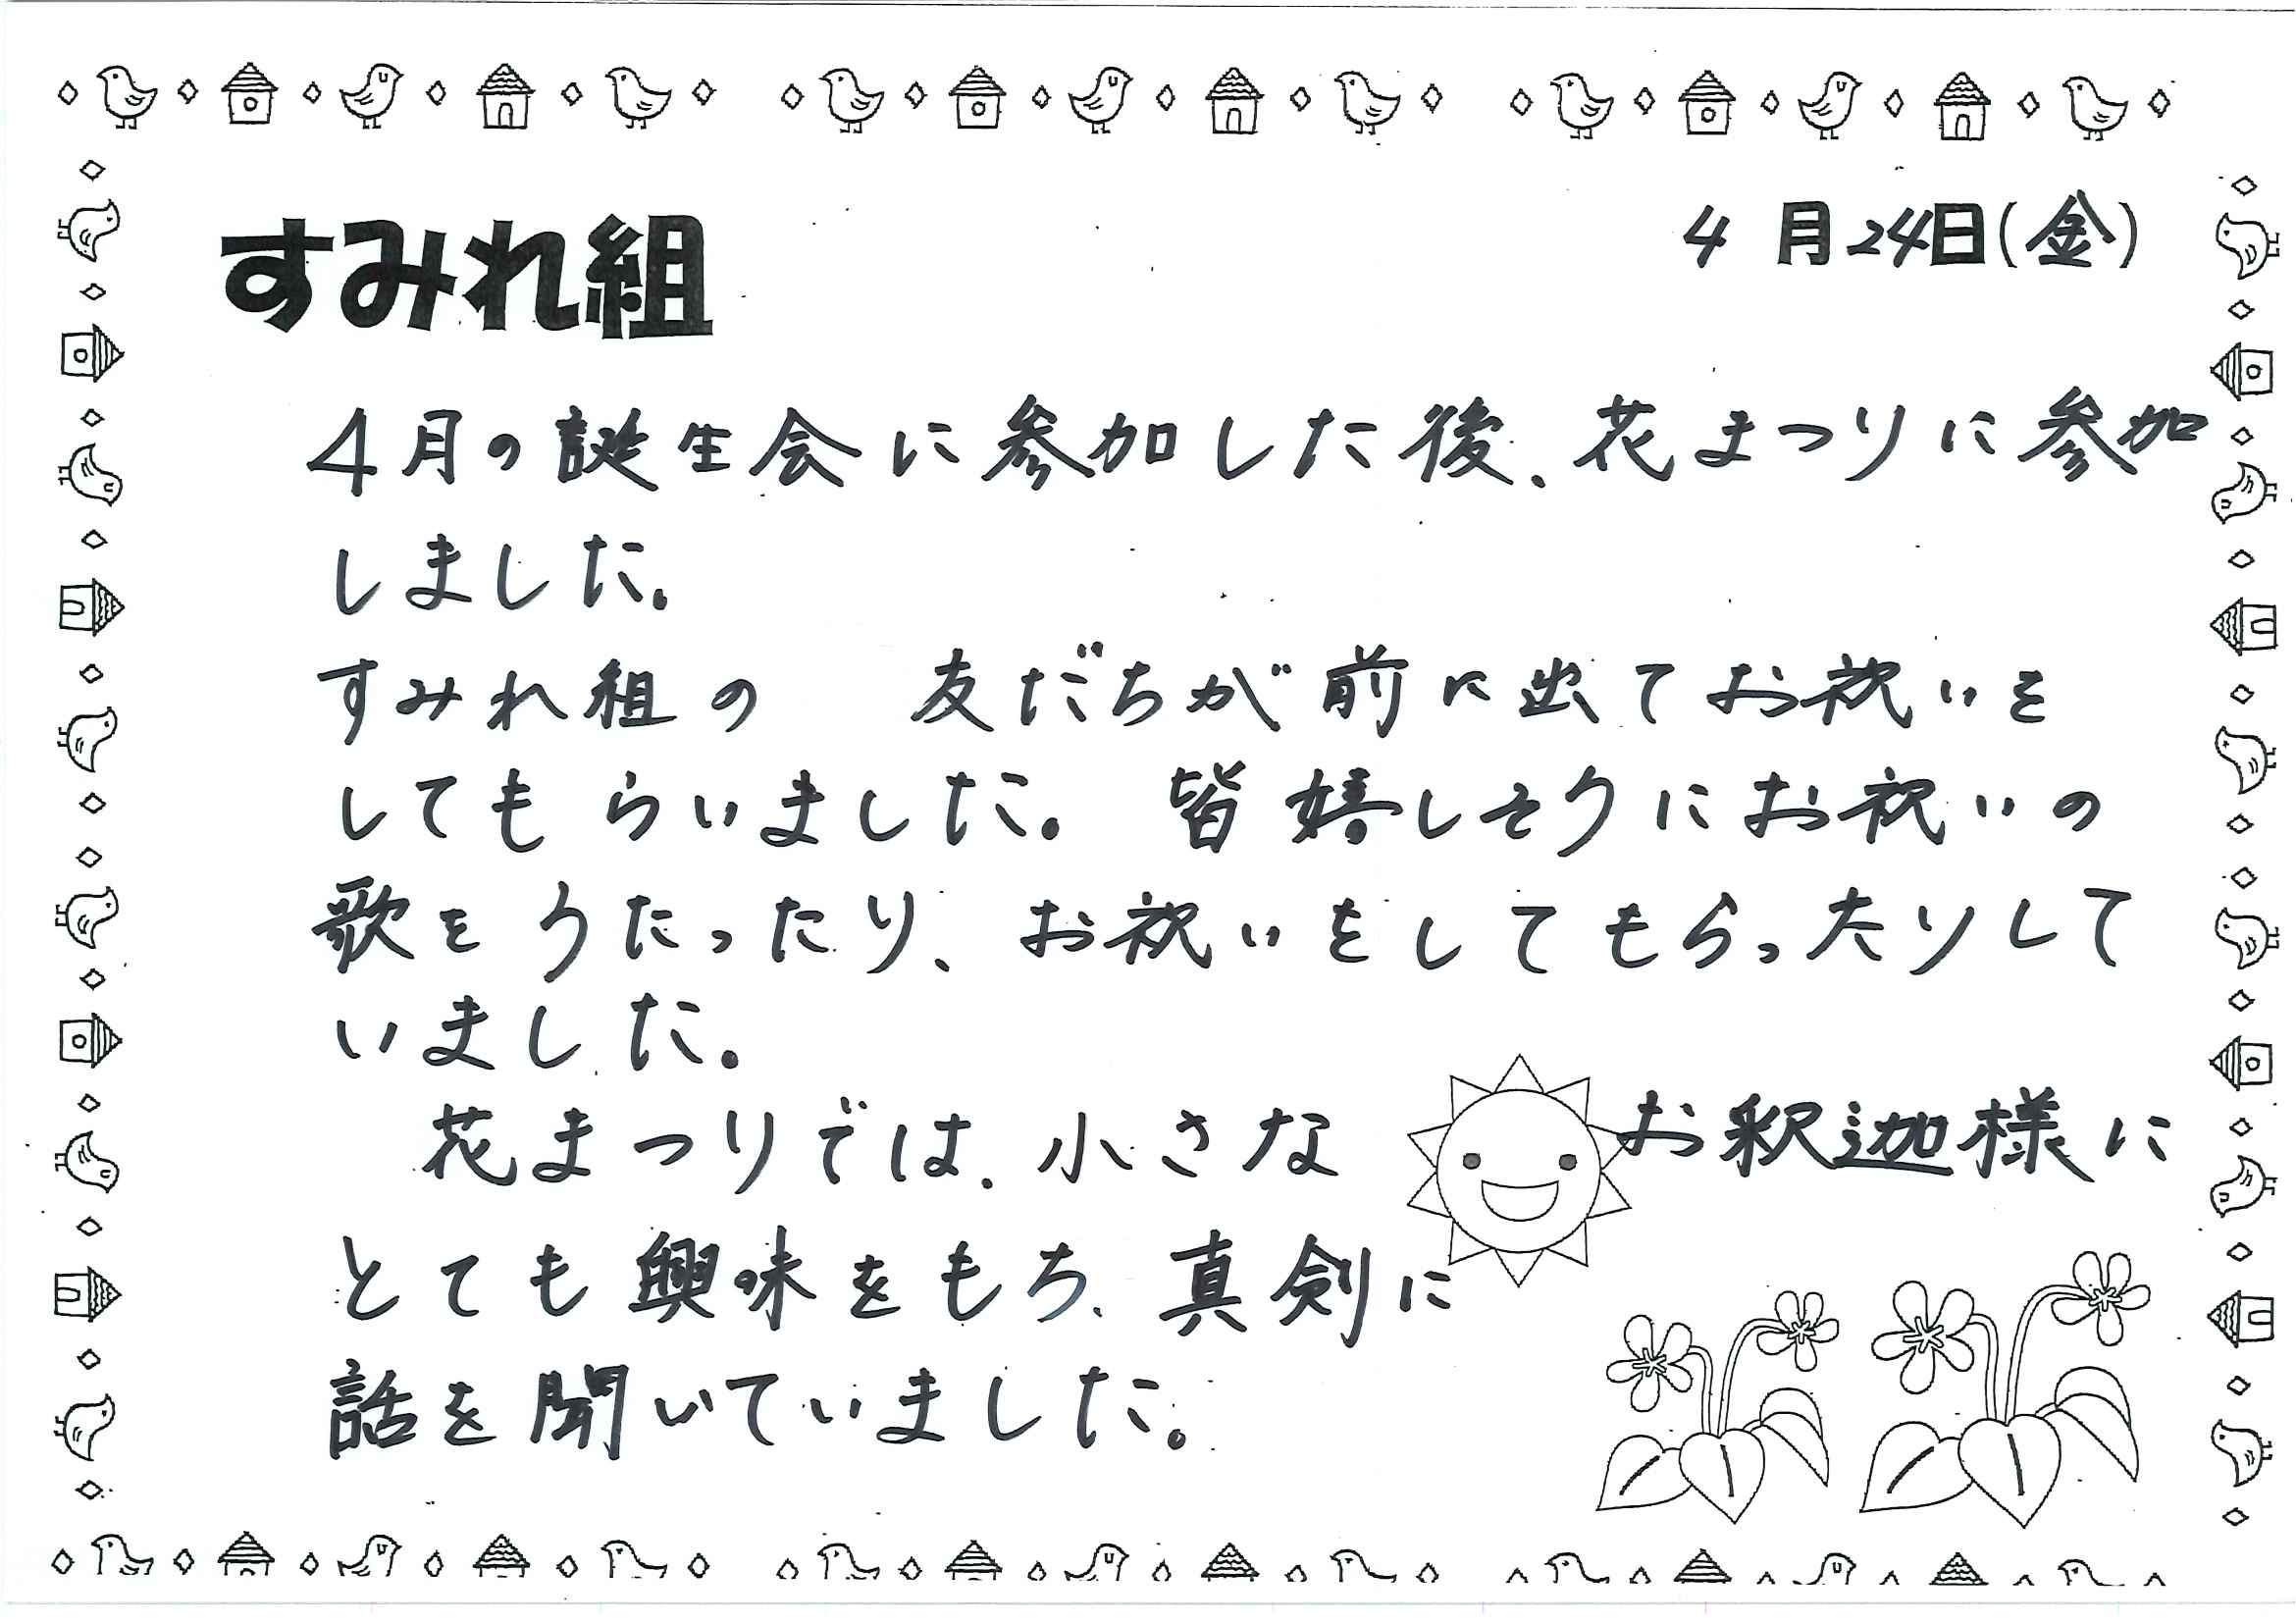 すみれ組
4月24日(金)
4月の誕生会に参加した後、花まつりに参加
しました。
すみれ組の 友だちが前に出てお祝いを
してもらいました。皆嬉しそうにお祝いの
歌をうたったり、お祝いをしてもらったりして
いました。
花まつりでは、小さな お釈迦様に
とても興味をもち、真剣に
話を聞いていました。